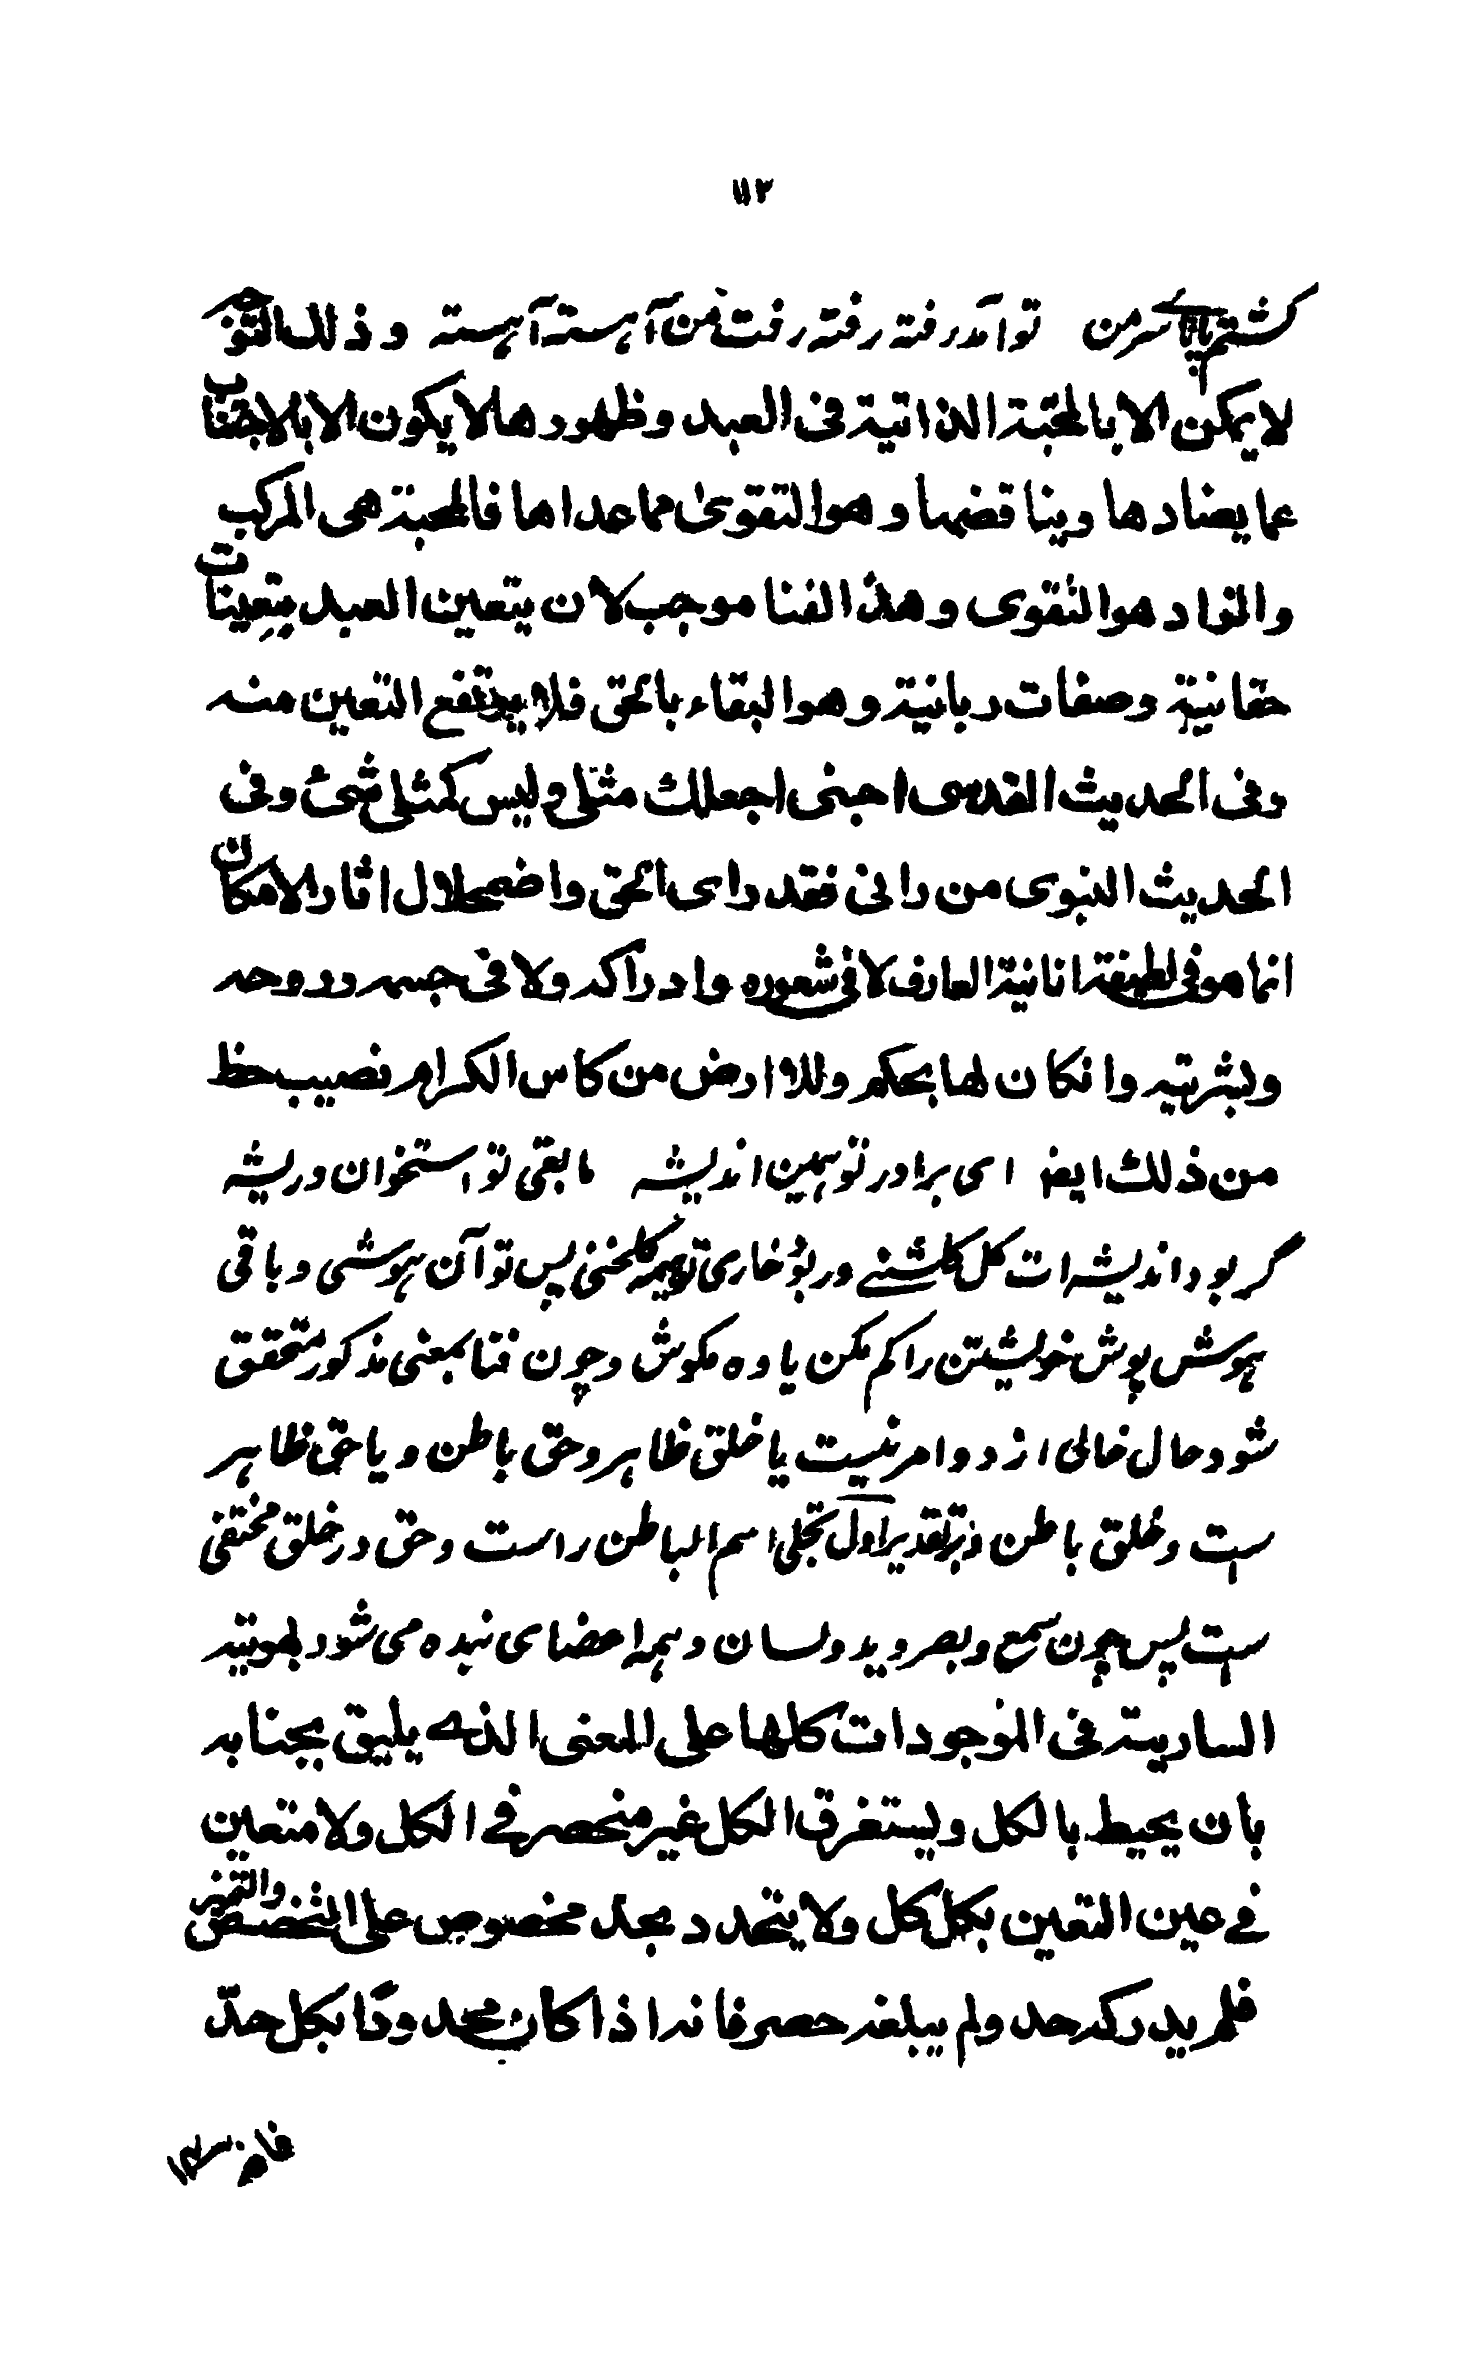 ١١٣
گشتم ز پا تا سر من تو آمد رفته رفته رفت من آهسته آهسته و ذلك التوجه
لا يمكن الا بالمحبة الذاتية فى العبد وظهورها لا يكون الا بالاجتناب
عما يضادها ويناقضها وهو التقوى مما عداها فالمحبة هى المركب
والزاد هو التقوى وهذا الفنا موجب لان يتعين العبد بتعينات
حقانية وصفات ربانية وهو البقاء بالحق فلا يرتفع التعين منه
وفى الحديث القدسى احبنى اجعلك مثلى وليس كمثلى شئ وفى
الحديث النبوى من رانى فقد راى الحق واضمحلال اثار الامكان
انما هو فى لطيفة انانية العارف لا فى شعوره وادراكه ولا فى جسمه وروحه
وبشريته وانكان لها بحكم وللارض من كاس الكرام نصيب حظ
من ذلك ايضا اى برادر تو همين انديشه مابقى تو استخوان وريشه
گر بود انديشه ات گل گلشنے ور بود خارى تو همه گلخنى پس تو آن هوشى و باقى
هوش پوش خويشتن را گم مكن ياوه مكوش و چون فنا بمعنى مذكور متحقق
شود حال خالى از دو امر نيست يا خلق ظاهر و حق باطن و يا حق ظاهر
ست و خلق باطن بر تقدير اول تجلى اسم الباطن راست و حق در خلق مختفى
ست پس چون سمع و بصر و يد و لسان و همه اعضاى بنده مى شود بهويته
السارية فى الموجودات كلها على المعنى الذے يليق بجنابه
بان يحيط بالكل ويستغرق الكل غير منحصر فے الكل ولا متعين
فے عين التعين بكل كل ولا يتحدد بحد مخصوص على التخصص والتميز
فلم يدركه حد ولم يبلغه حصر فانه اذا كان محدودا بكل حدّ